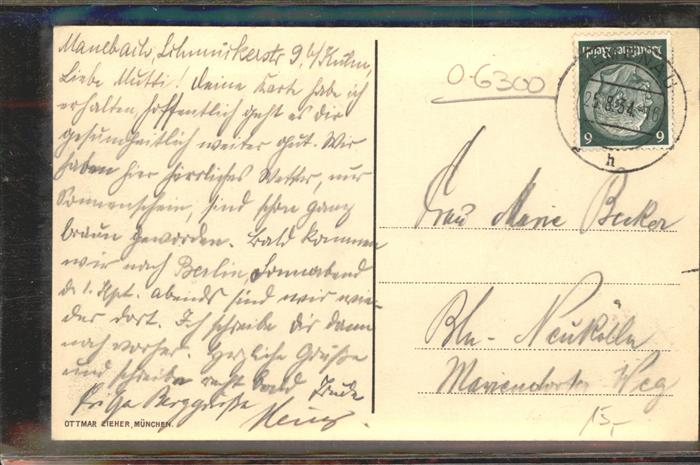 Manebach, Schmückerstr. 9, b/Kuhn,
Liebe Mutti! Deine Karte habe ich
erhalten, hoffentlich geht es dir
gesundheitlich weiter gut. Wir
haben hier herrliches Wetter, nur
Sonnenschein, sind schon ganz
braun geworden. Bald kommen
wir nach Berlin, Sonnabend
d. 1. Spt. abends sind wir wie-
der dort. Ich schreibe Dir dann
noch vorher. Herzliche Grüße
und schreibe recht bald
Heinz
OTTMAR ZIEHER, MÜNCHEN.
0-6300
Deutsches Reich
6 6
25.8.34
h
Frau Marie Becker
Bln-Neukölln
Mariendorfer Weg
15,-